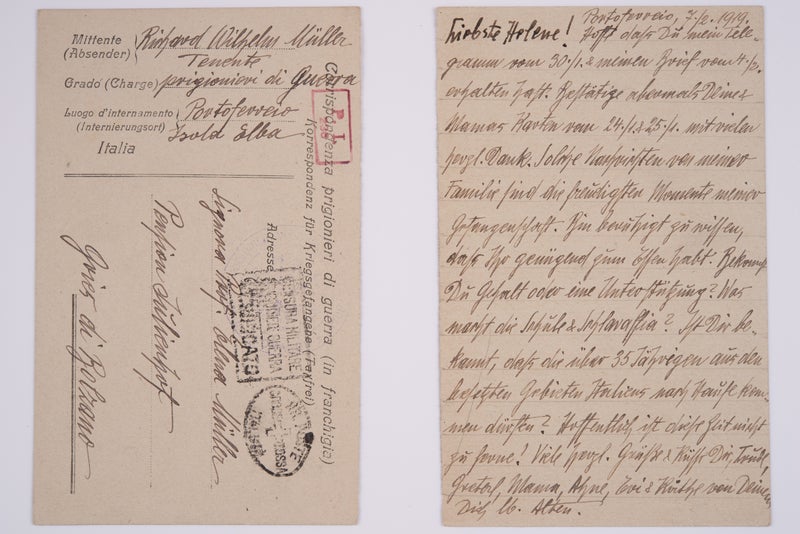 Mittente
(Absender)
Richard Wilhelm Müller
Tenente
Grado (Charge) prigionieri di Guerra
Luogo d'internamento
(Internierungsort)
Portoferreio
Isola Elba
Italia
P. I.
Corrispondenza prigionieri di guerra (in franchigia)
Korrespondenz für Kriegsgefangene (Taxfrei)
Adresse
CENSURA MILITARE
GUERRA
Signora Prof. Müller
Pension
Gries di Bolzano
Liebste Helene! Portoferreio, 7./2. 1919.
Hofft daß Du mein Tele-
gramm vom 30./1. & meinen Brief vom 4./2.
erhalten hast. Bestätige abermals Deine &
Mamas Karten vom 24./1. & 25./1. mit vielen
herzl. Dank. Solche Nachrichten von meiner
Familie sind die freudigsten Momente meiner
Gefangenschaft. Bin beruhigt zu wissen,
daß Ihr genügend zum Essen habt. Bekommst
Du Gehalt oder eine Unterstützung? Was
macht die Schule & Schlaraffia? Ist Dir be-
kannt, daß die über 35 Jährigen aus den
besetzten Gebieten Italiens nach Hause kom-
men dürfen? Hoffentlich ist diese Zeit nicht
zu ferne! Viele herzl. Grüße & Küße Dir, Trudl,
Gretl, Mama, Evi & Käthe von Deinem
Dich lb. Alten.